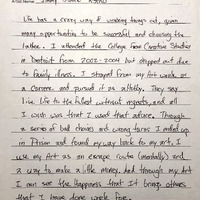 Artist Name: Jimmy
Life has a crazy way of working things out, given
many opportunities to be successful and choosing the
latter. I attended the College for Creative Studies
in Detroit from 2002-2004 but dropped out due
to family illness. I strayed from my Art work as
a career and pursued it as a hobby. They say
live life to the fullest without regrets, and all
I wish was that I used that advice. Through
a series of bad choices and wrong turns I ended up
in Prison and found my way back to my art. I
use my Art as an escape route (mentally) and
a way to make a little money, but through my Art
I can see the Happiness that it brings others
that I have done work for.